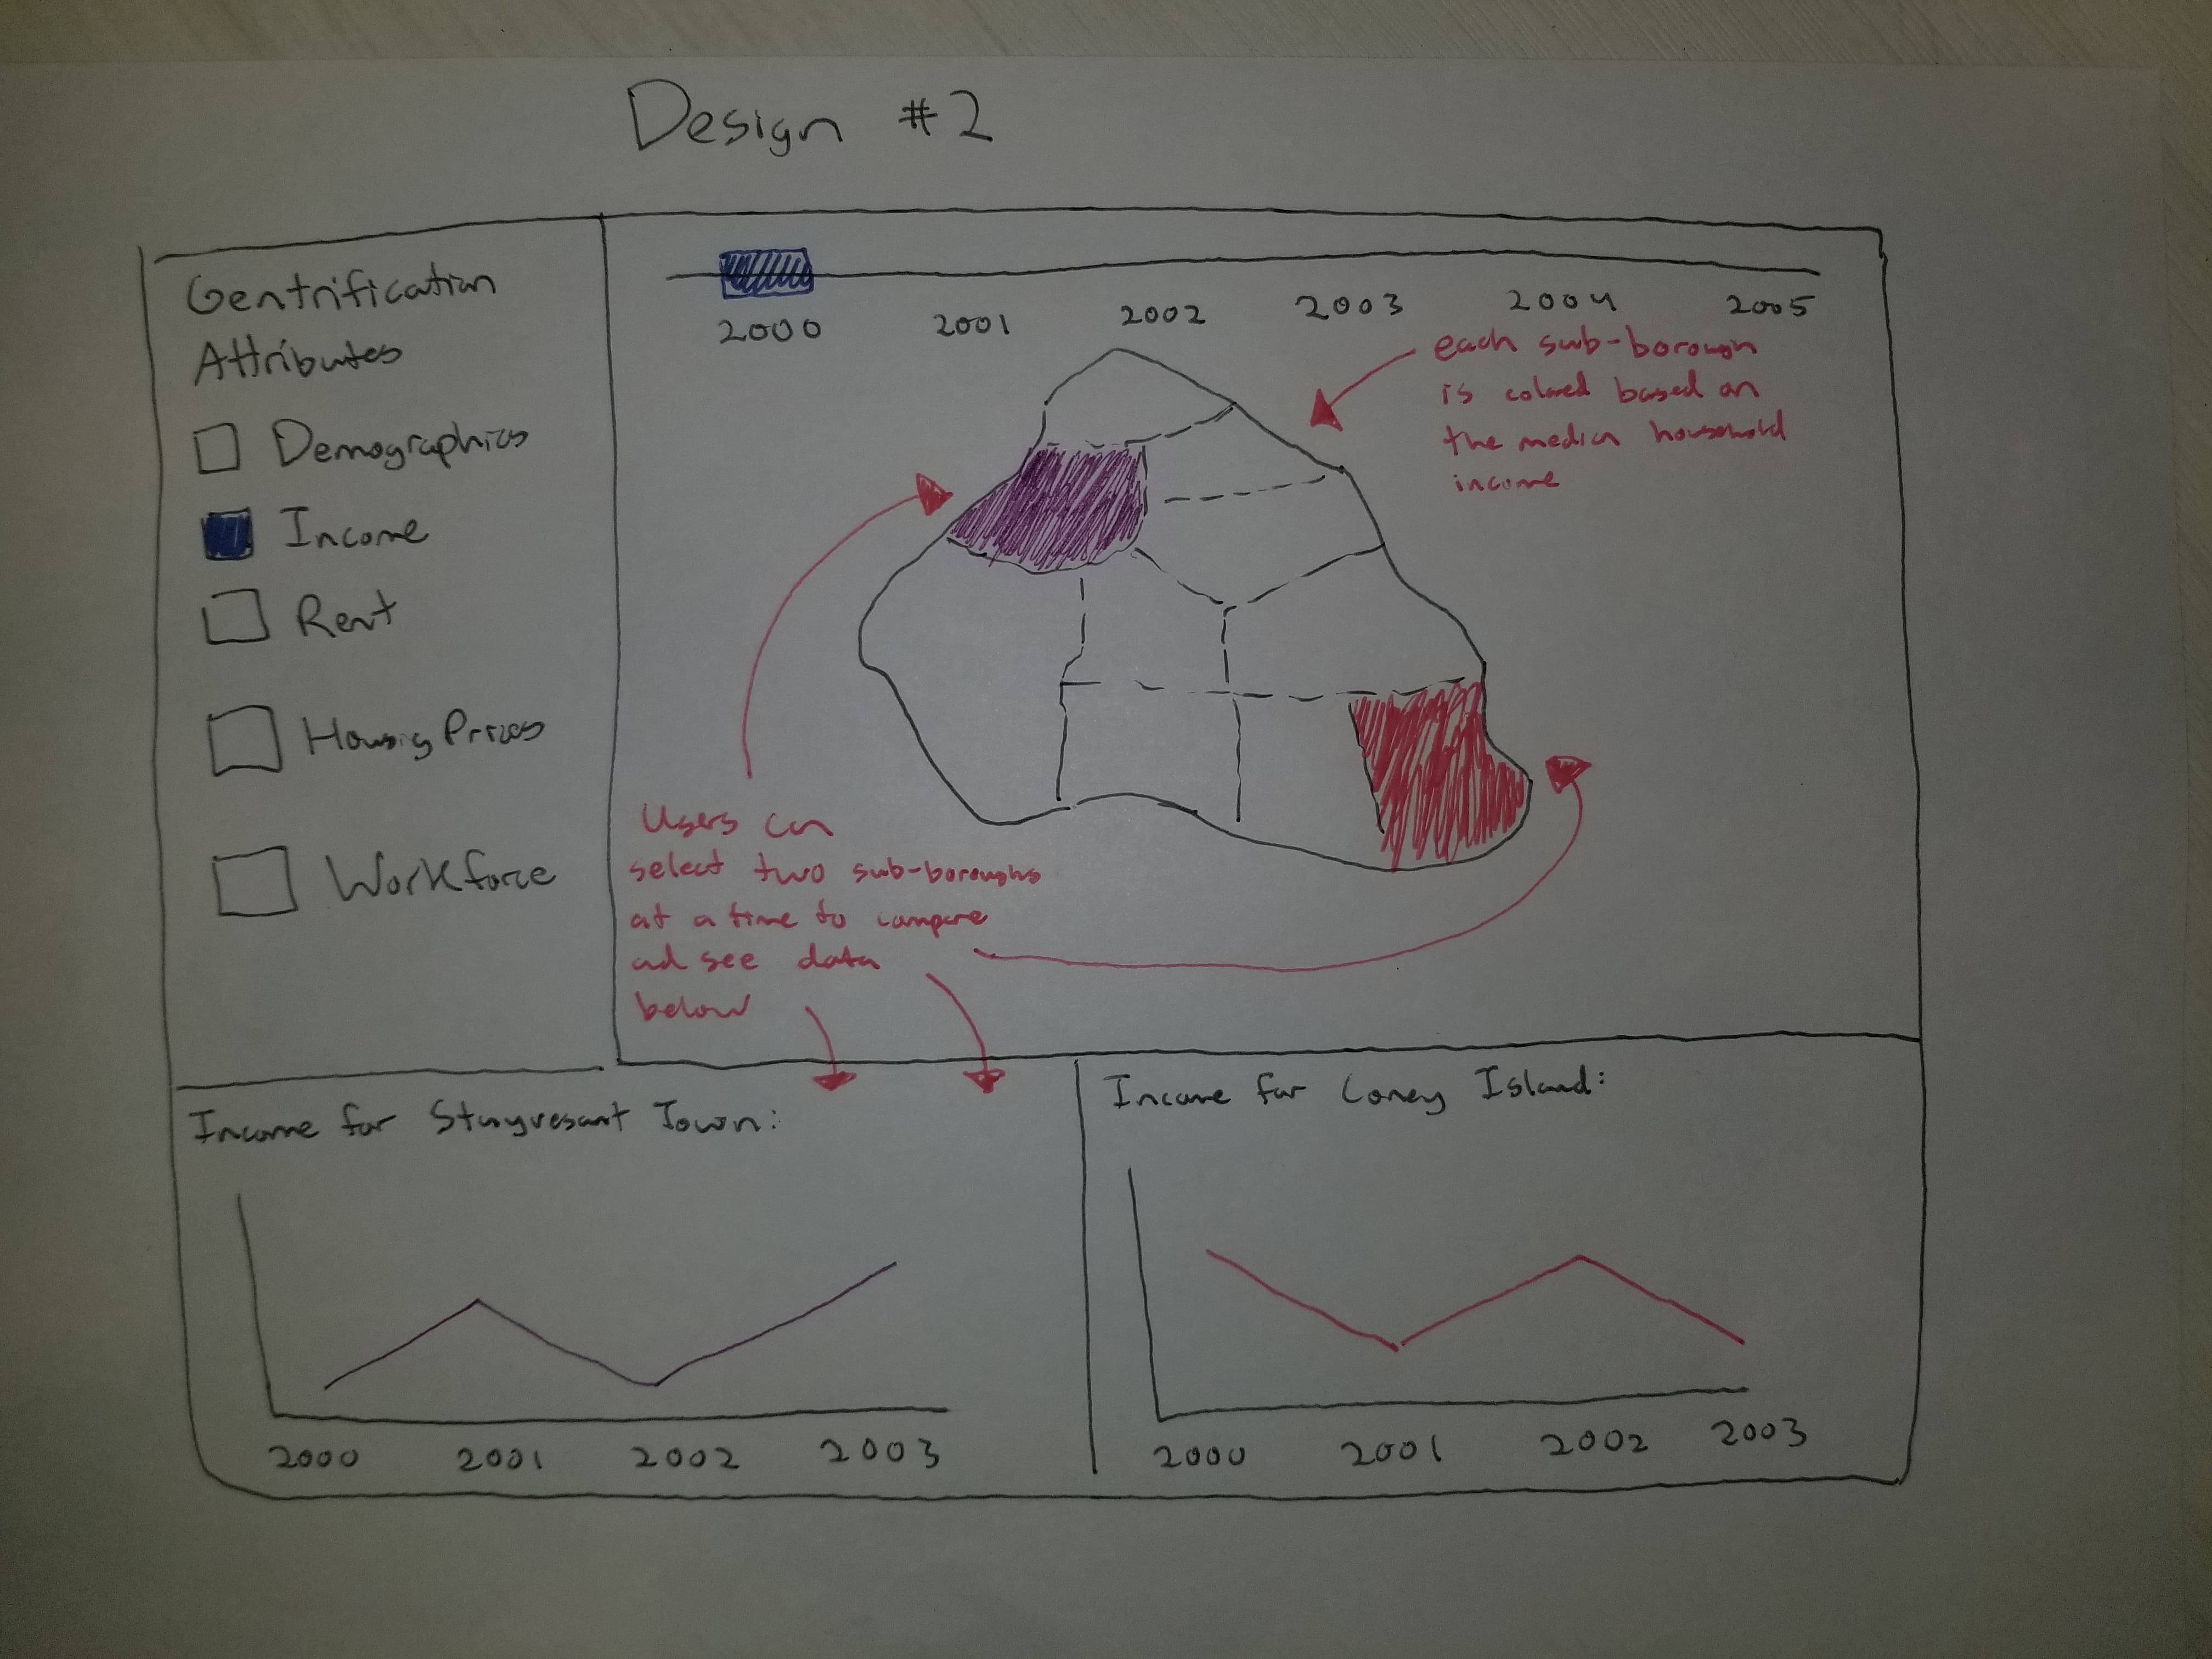 Design #2
Gentrification
Attributes
Demographics
Income
Rent
Housig Prices
Workforce
2000 2001 2002 2003 2004 2005
each sub-borough
is colored based on
the median household
income
Users can
select two sub-boroughs
at a time to compare
ad see data
below
Income for Stuyvesant Town:
2000 2001 2002 2003
Income for Coney Island:
2000 2001 2002 2003